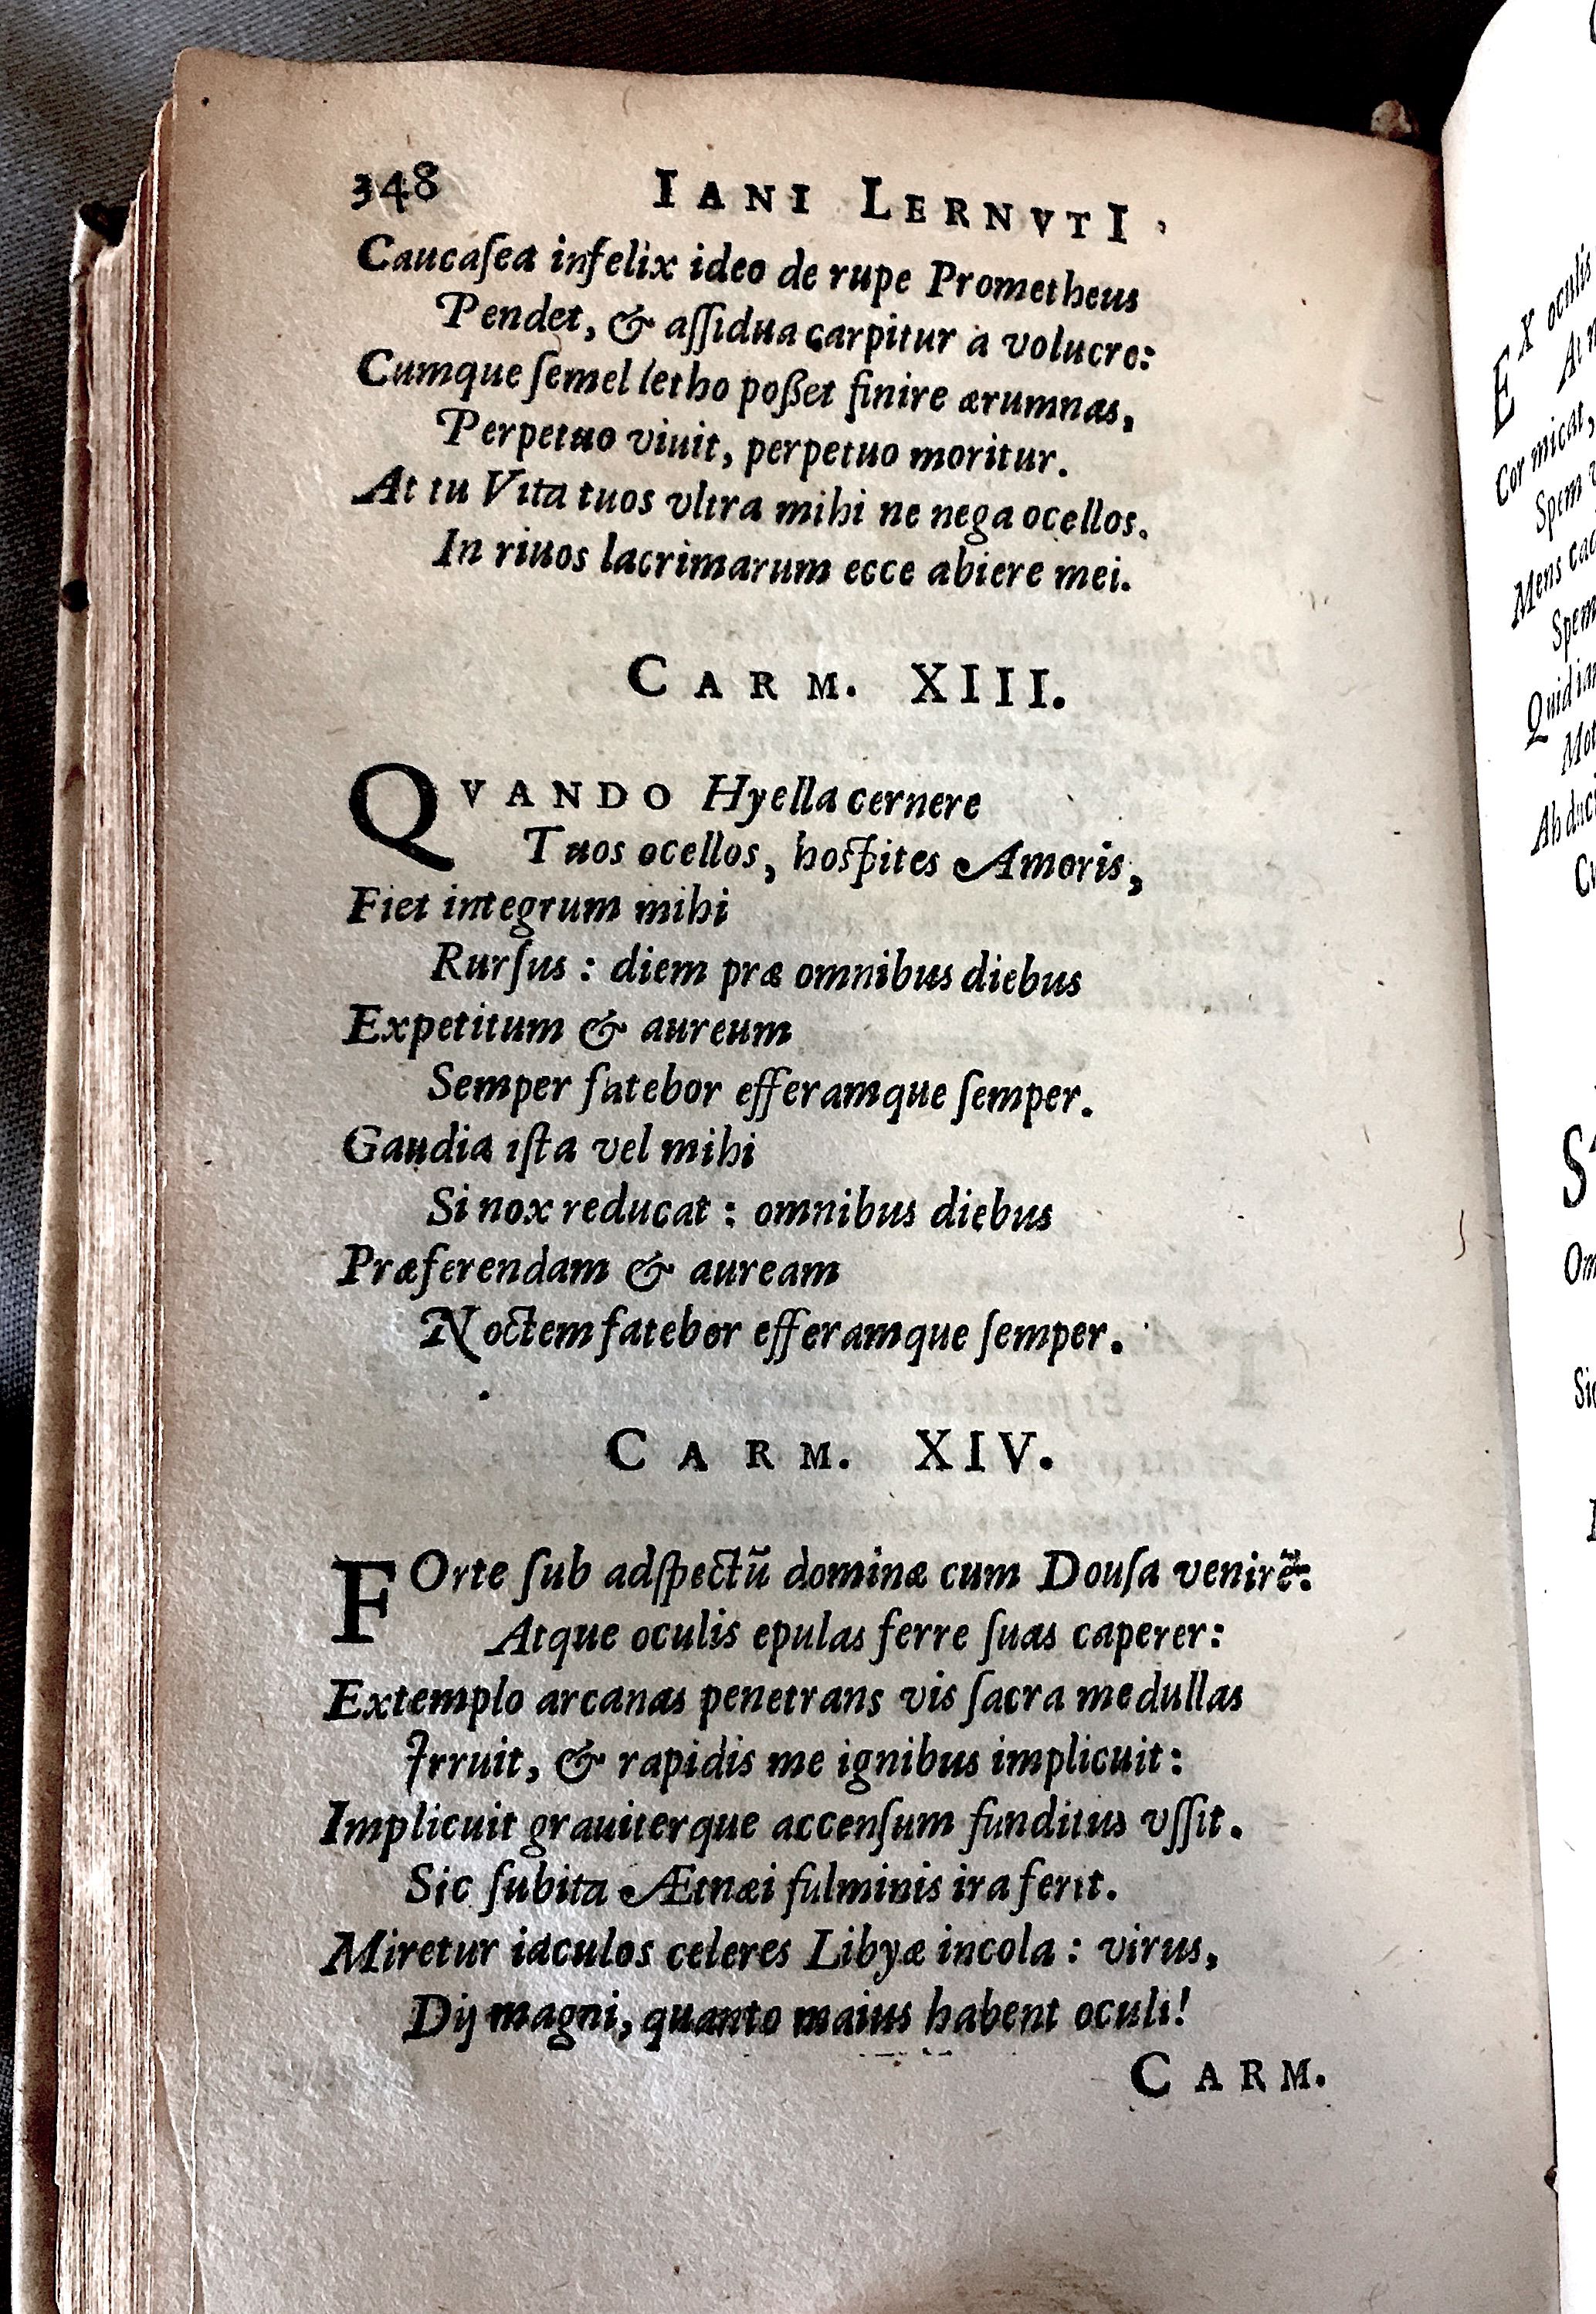 348 IANI LERNVTI
Caucaſea infelix ideo de rupe Prometheus
Pendet, & aſſidua carpitur à volucre:
Cumque ſemel letho poßet finire ærumnas,
Perpetuo viuit, perpetuo moritur.
At tu Vita tuos vltra mihi ne nega ocellos.
In riuos lacrimarum ecce abiere mei.
CARM. XIII.
QVANDO Hyella cernere
Tuos ocellos, hoſpites Amoris,
Fiet integrum mihi
Rurſus : diem præ omnibus diebus
Expetitum & aureum
Semper fatebor efferamque ſemper.
Gaudia iſta vel mihi
Si nox reducat : omnibus diebus
Præferendam & auream
Noctem fatebor efferamque ſemper.
CARM. XIV.
FOrte ſub adſpectũ dominæ cum Douſa venirẽ:
Atque oculis epulas ferre ſuas caperer:
Extemplo arcanas penetrans vis ſacra medullas
Irruit, & rapidis me ignibus implicuit:
Implicuit grauiterque accenſum funditus vſſit.
Sic ſubita Ætnæi fulminis ira ferit.
Miretur iaculos celeres Libyæ incola : virus,
Dij magni, quanto maius habent oculi!
CARM.
Ex oculis
Cor micat,
Spem
Mens